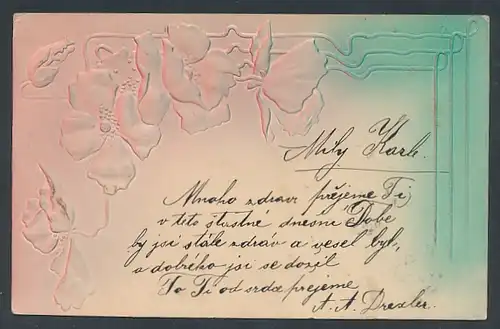 Milý Karle.
Mnoho zdraví přejeme Ti
v této šťastné dnešní Době
by jsi stále zdráv a vesel byl,
a dobrého jsi se dožil
To Ti od srdce přejeme
A. A. Drexler.